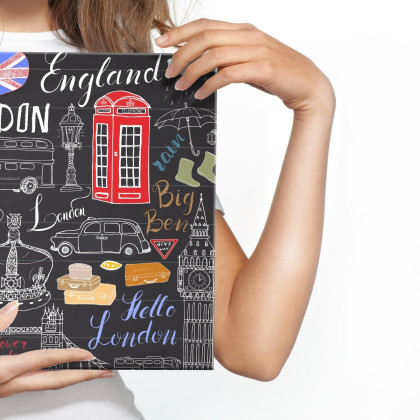 England
DON
TELEPHONE
rain
London
Big
Ben
GIVE
WAY
Hello
London
ower